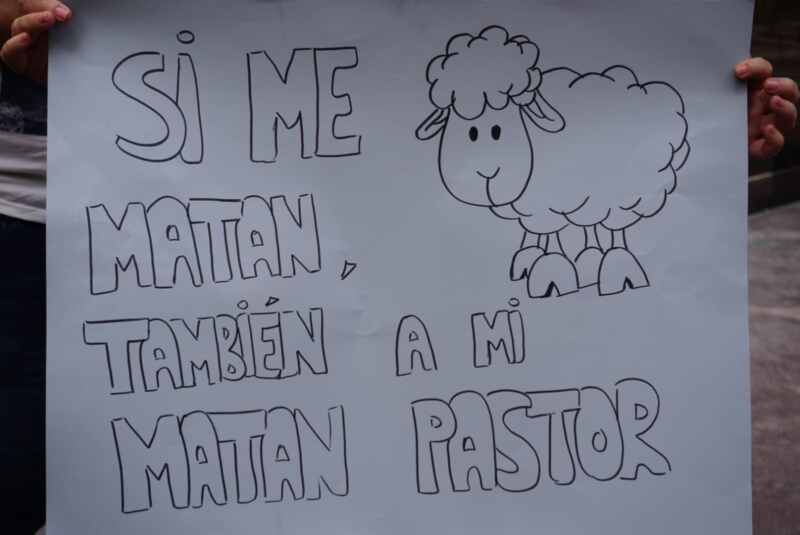 SI ME
MATAN,
TAMBIÉN A MI
MATAN PASTOR